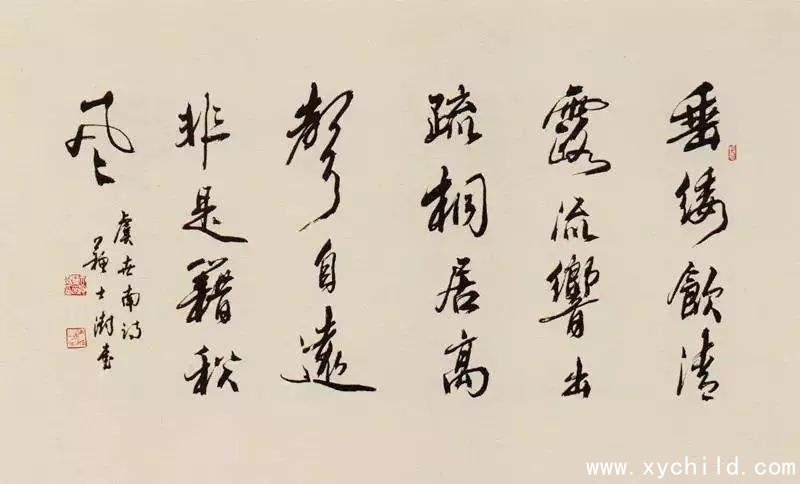 垂緌飲清
露流響出
疏桐居高
聲自遠
非是籍秋
風
虞世南詩
蘇士澍書
www.xychild.com